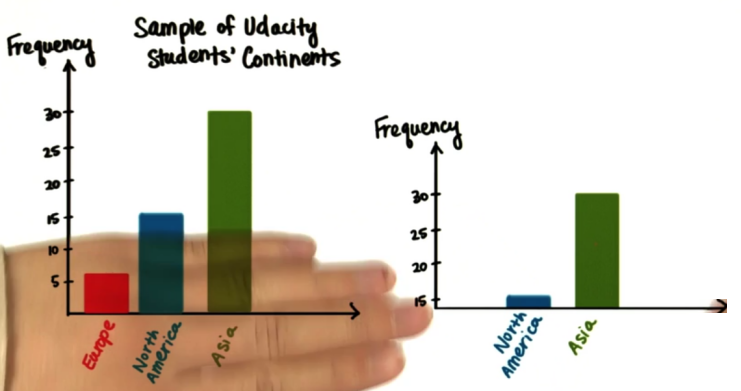 Sample of Udacity
Students' Continents
Frequency
30
25
20
15
10
5
Europe
North
America
Asia
Frequency
30
25
20
15
North
America
Asia